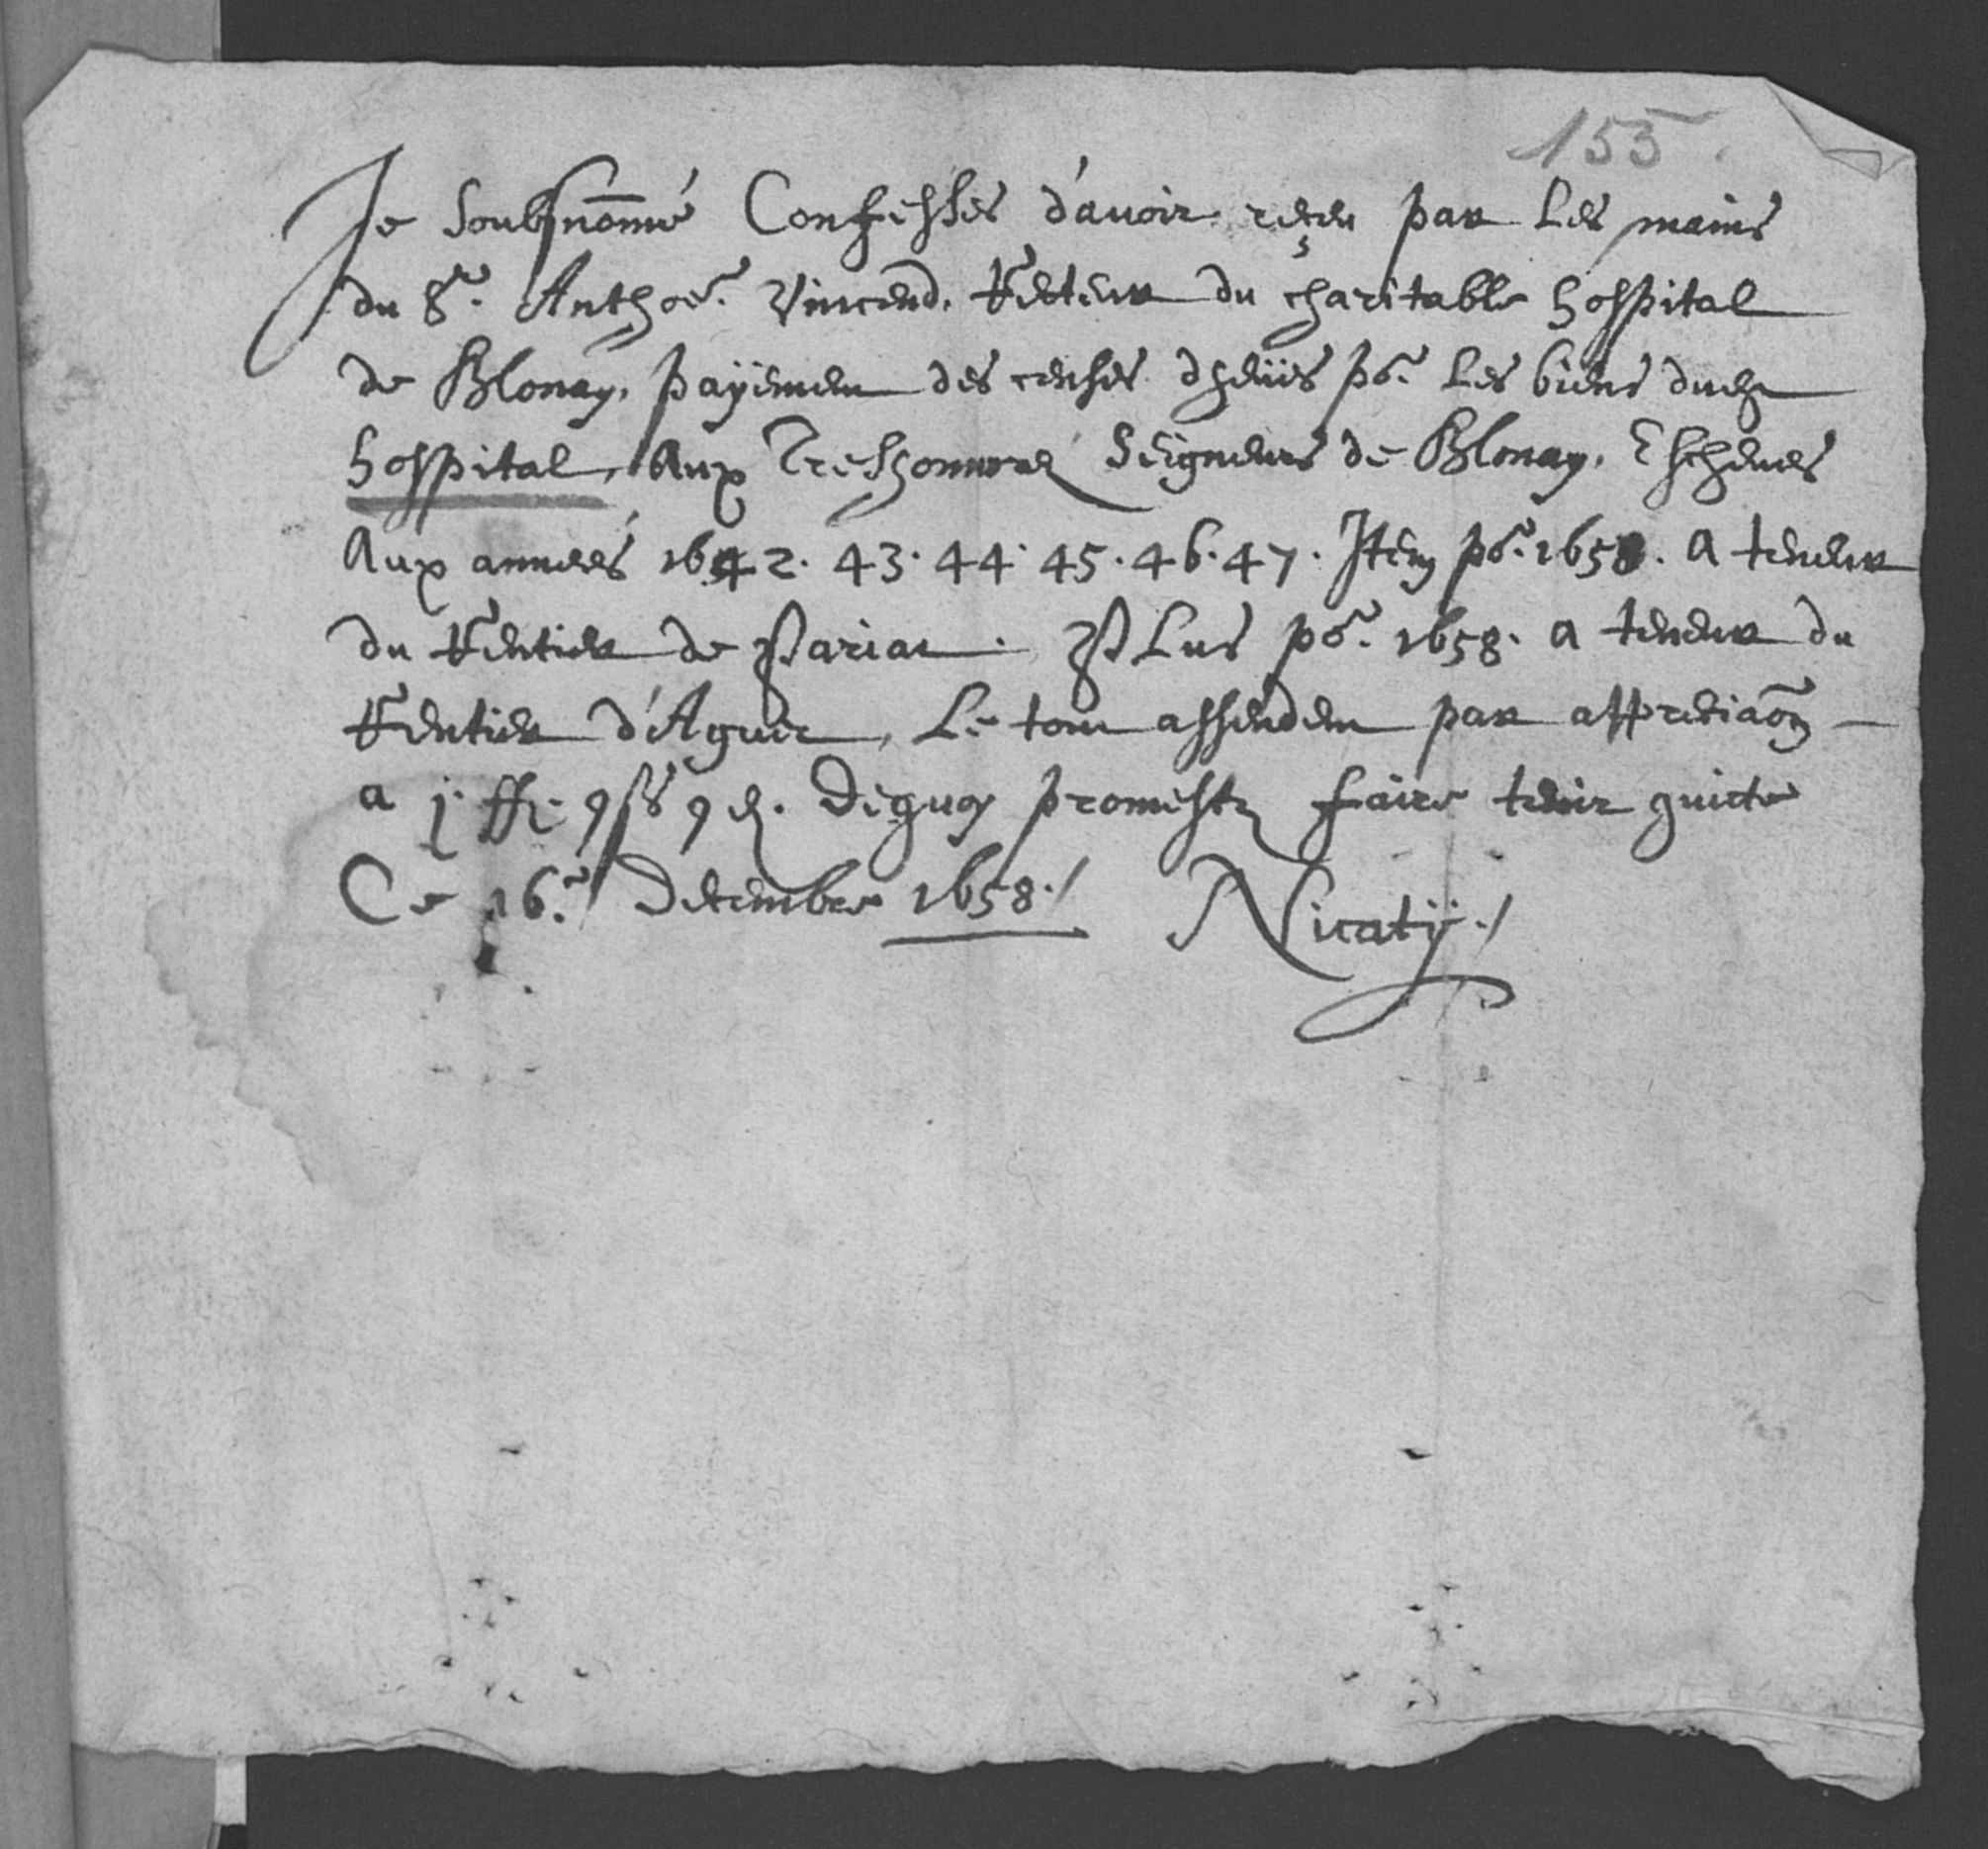 155
Je Soubsnõmé Confesses d'auoir reçeu par Les mains
du Sr. Anthoe. Vincend. Recteur du charitable hospital
de Blonay, payement des censes dheües po.r Les biens dudt
hospital, Aux Treshonnorez Seigneurs de Blonay. Escheues
Aux années 1642. 43. 44. 45. 46. 47. Item po.r 1658. A teneur
du Rentier de Pariat. Plus po.r 1658. A teneur du
Rentier d'Aguit, Le tout assendent par apprétiaõn
a j. ff. 9 ss 9 d. Dequoy promestz faire tenir quicte
Ce 16.e Decembre 1658./ Nicatij./